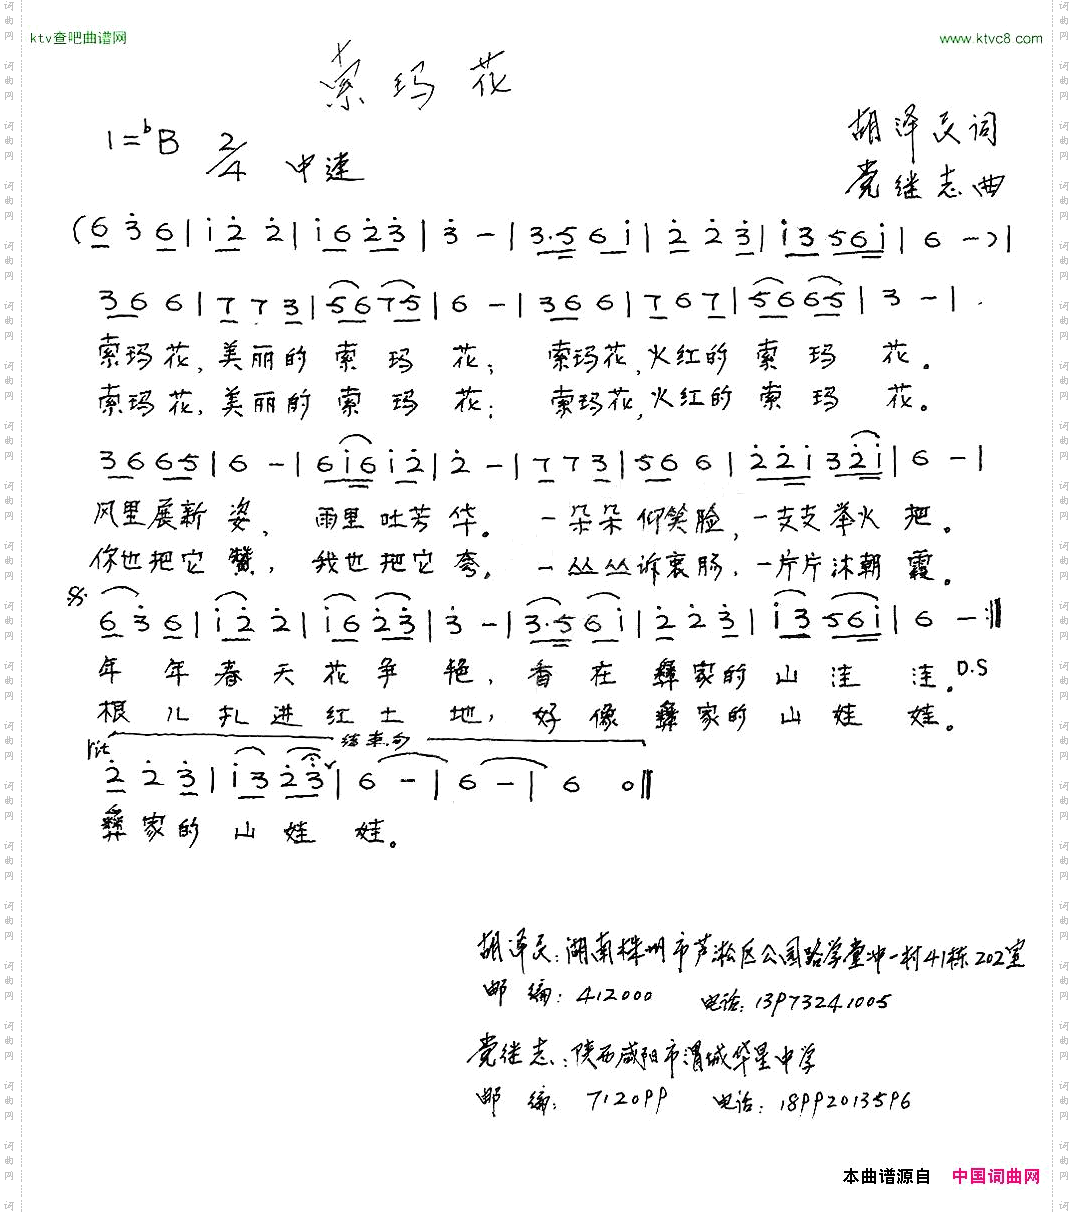 ktv查吧曲谱网
www.ktvc8.com
索玛花
1=bB 2/4 中速
胡泽民词
党继志曲
(6 3 6 | i 2 2 | i 6 2 3 | 3 - | 3·5 6 i | 2 2 3 | i 3 5 6 i | 6 - ) |
3 6 6 | 7 7 3 | 5 6 7 5 | 6 - | 3 6 6 | 7 6 7 | 5 6 6 5 | 3 - |
索玛花,美丽的索玛花; 索玛花,火红的索玛花。
索玛花,美丽的索玛花; 索玛花,火红的索玛花。
3 6 6 5 | 6 - | 6 i 6 i 2 | 2 - | 7 7 3 | 5 6 6 | 2 2 i 3 2 i | 6 - |
风里展新姿, 雨里吐芳华。 一朵朵仰笑脸,一支支举火把。
你也把它赞, 我也把它夸。 一丛丛诉衷肠,一片片沐朝霞。
6 3 6 | i 2 2 | i 6 2 3 | 3 - | 3·5 6 i | 2 2 3 | i 3 5 6 i | 6 - :||
年年春天花争艳,香在彝家的山洼洼。D.S
根儿扎进红土地,好像彝家的山娃娃。
rit 结束句
2 2 3 | i 3 2 3 | 6 - | 6 - | 6 0 ||
彝家的山娃娃。
胡泽民:湖南株州市芦淞区公园路学堂冲一村41栋202室
邮编:412000 电话:13973241005
党继志:陕西咸阳市渭城华星中学
邮编:712099 电话:18992013596
本曲谱源自 中国词曲网